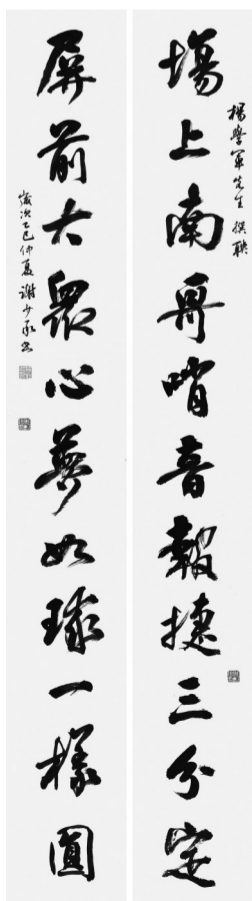 場上南哥哨音報捷三分定
楊學軍先生撰聯
屏前大衆心夢如球一樣圓
歲次乙巳仲夏謝少承書